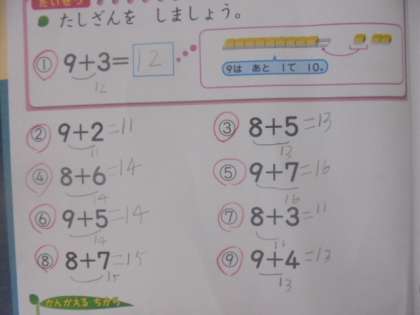 たいせつ
● たしざんを しましょう。
① 9+3=12
12
9は あと 1で 10。
② 9+2=11
11
③ 8+5=13
13
④ 8+6=14
14
⑤ 9+7=16
16
⑥ 9+5=14
14
⑦ 8+3=11
11
⑧ 8+7=15
15
⑨ 9+4=13
13
かんがえる ちから